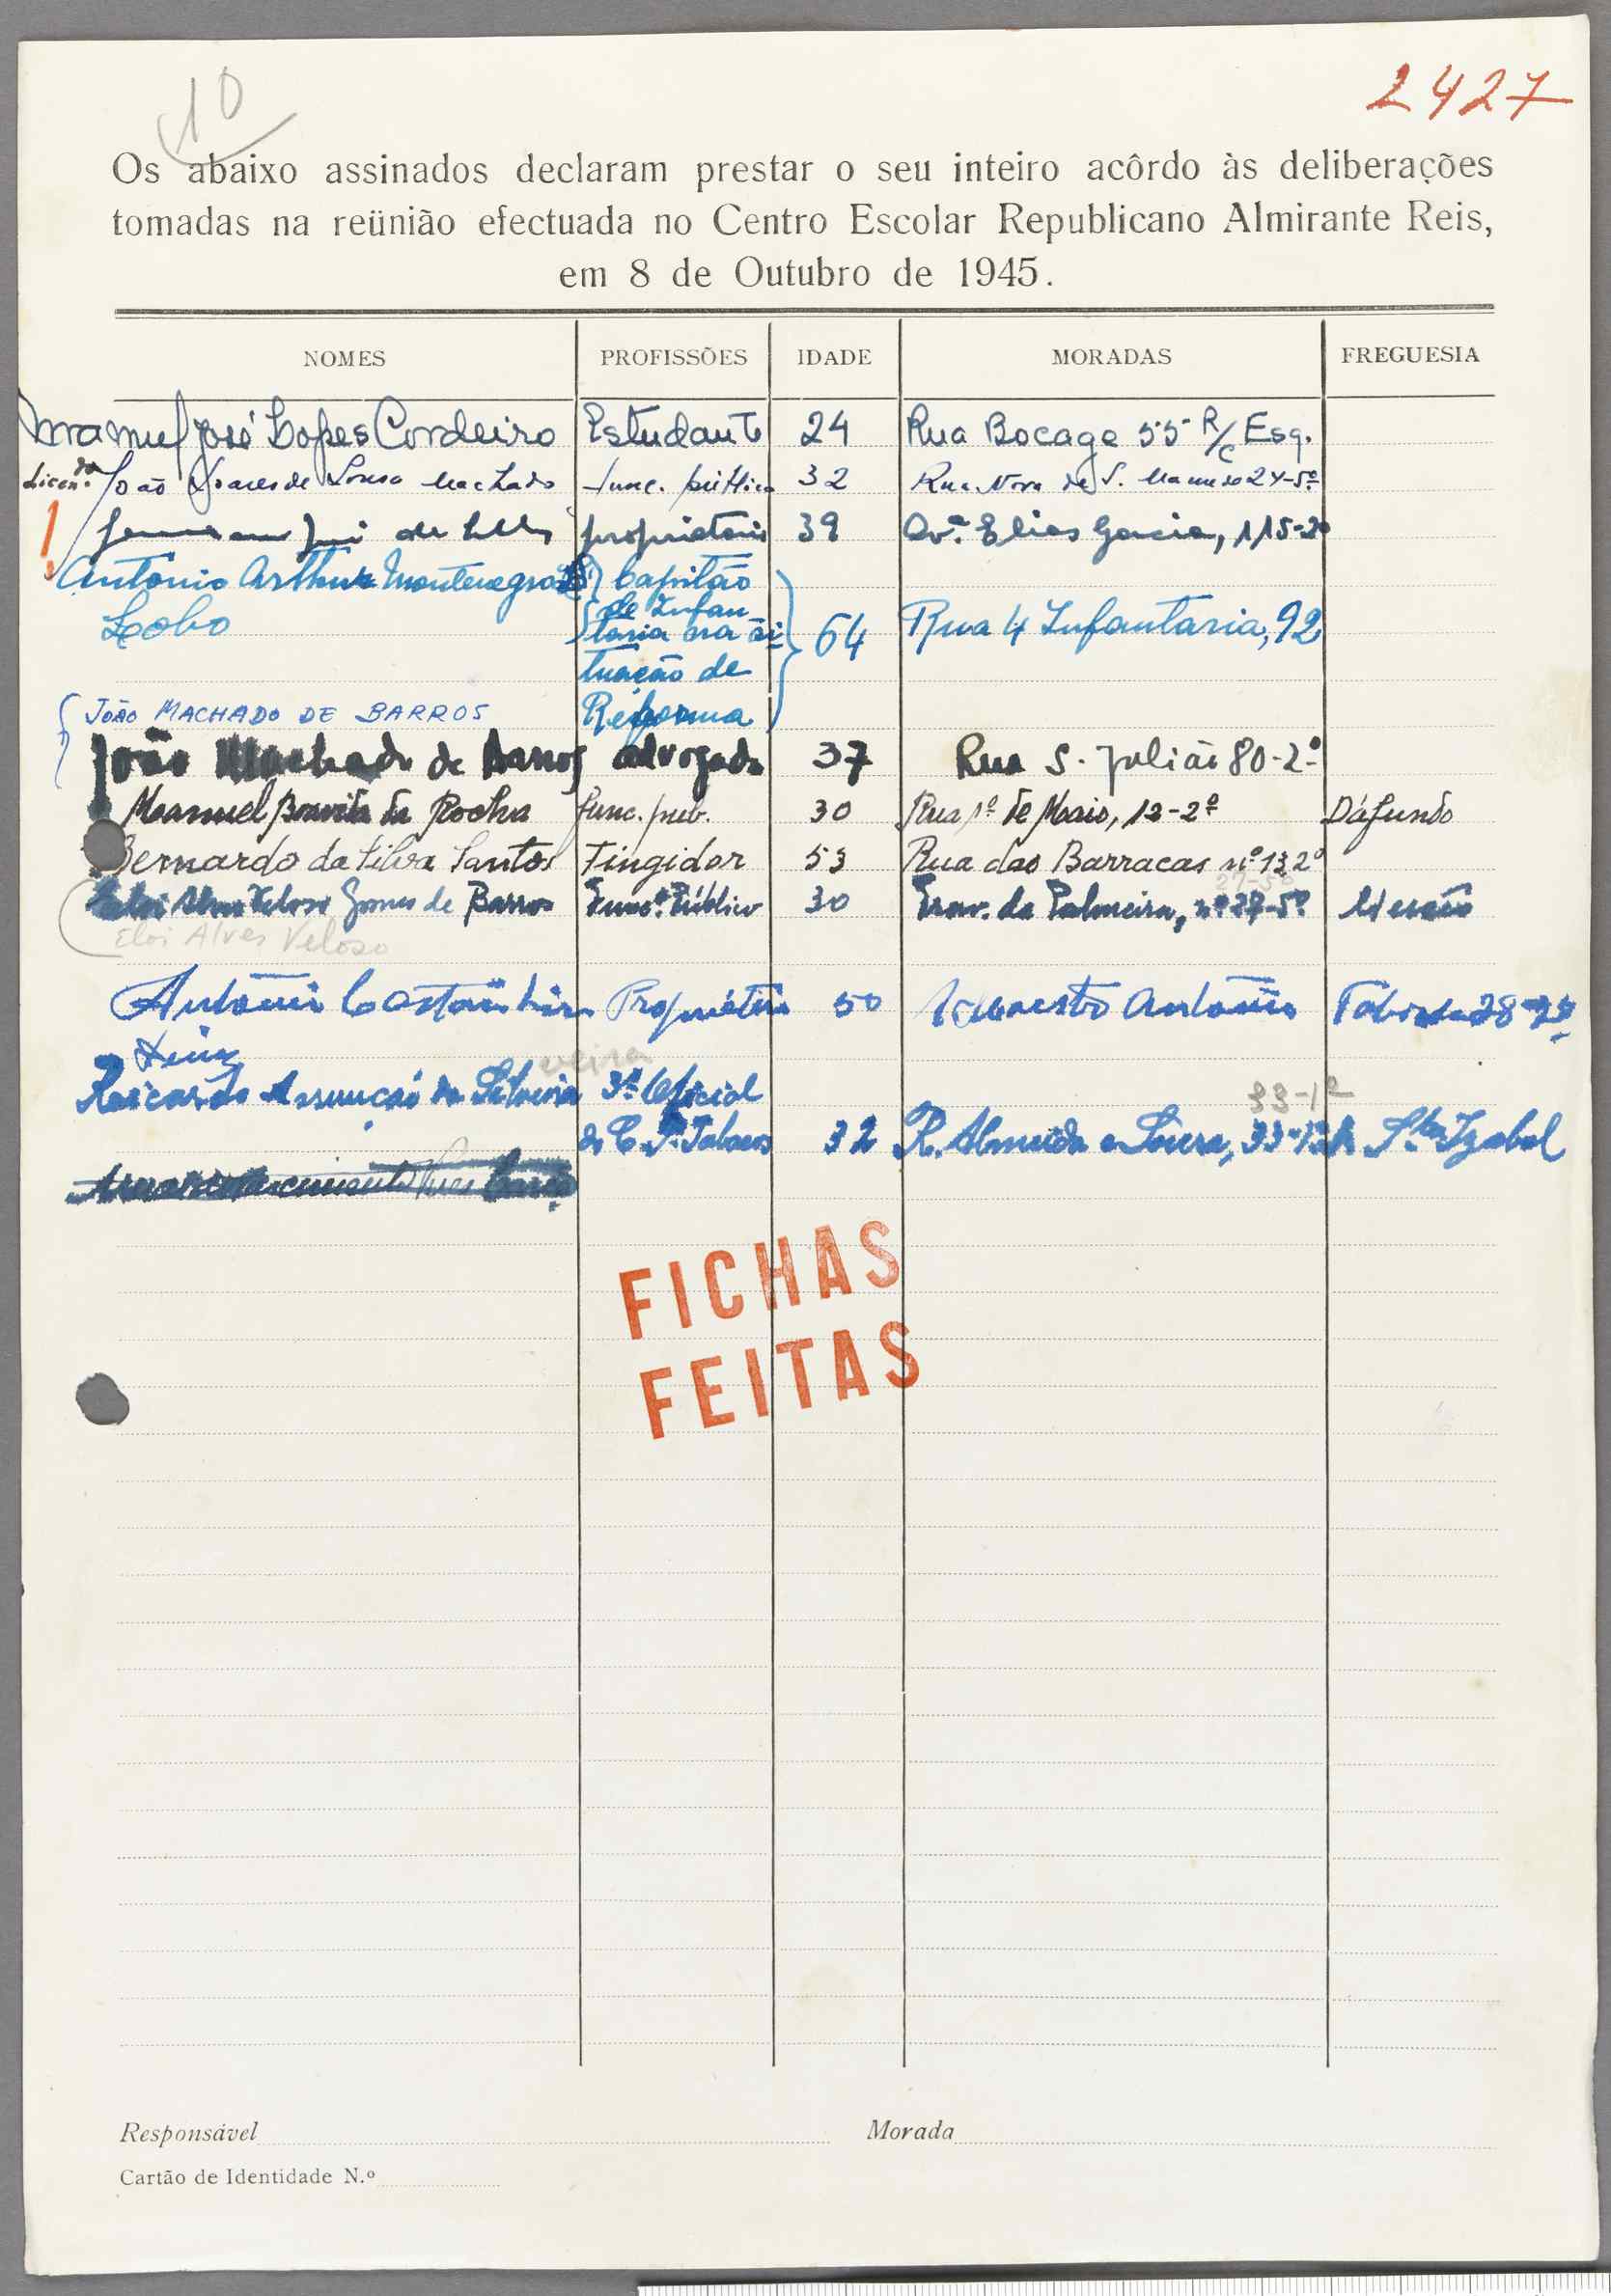 10
2427
Os abaixo assinados declaram prestar o seu inteiro acôrdo às deliberações
tomadas na reünião efectuada no Centro Escolar Republicano Almirante Reis,
em 8 de Outubro de 1945.
NOMES PROFISSÕES IDADE MORADAS FREGUESIA
Manuel José Lopes Cordeiro Estudante 24 Rua Bocage 55 R/C Esq.
Licen.do João Soares de Sousa Machado func. público 32 Rua Nova de S. Mamede 24-5º
! de proprietario 39 Av.ª Elias Garcia, 115-2º
António Arthur Montenegro Capitão
Lobo de Infan-
taria na si- 64 Rua 4 Infantaria, 92
tuação de
JOÃO MACHADO DE BARROS Reforma
João Machado de Barros advogado 37 Rua S. Julião 80-2º
Manuel da Rocha func. pub. 30 Rua 1º de Maio, 12-2º Dáfundo
Bernardo da Silva Santos Fingidor 53 Rua das Barracas nº 13 2º
27-5º
Eloi Alves Veloso Gomes de Barros Func.º Público 30 Trav. da Palmeira, nº 27-5º Mercês
Eloi Alves Veloso
António Proprietário 50 António 28
Ricardo Assunção da 3º Oficial
33-1º
da C. P. Tabacos 32 R. Almeida e Sousa, 33-1º Sta Izabel
FICHAS
FEITAS
Responsável Morada
Cartão de Identidade N.º